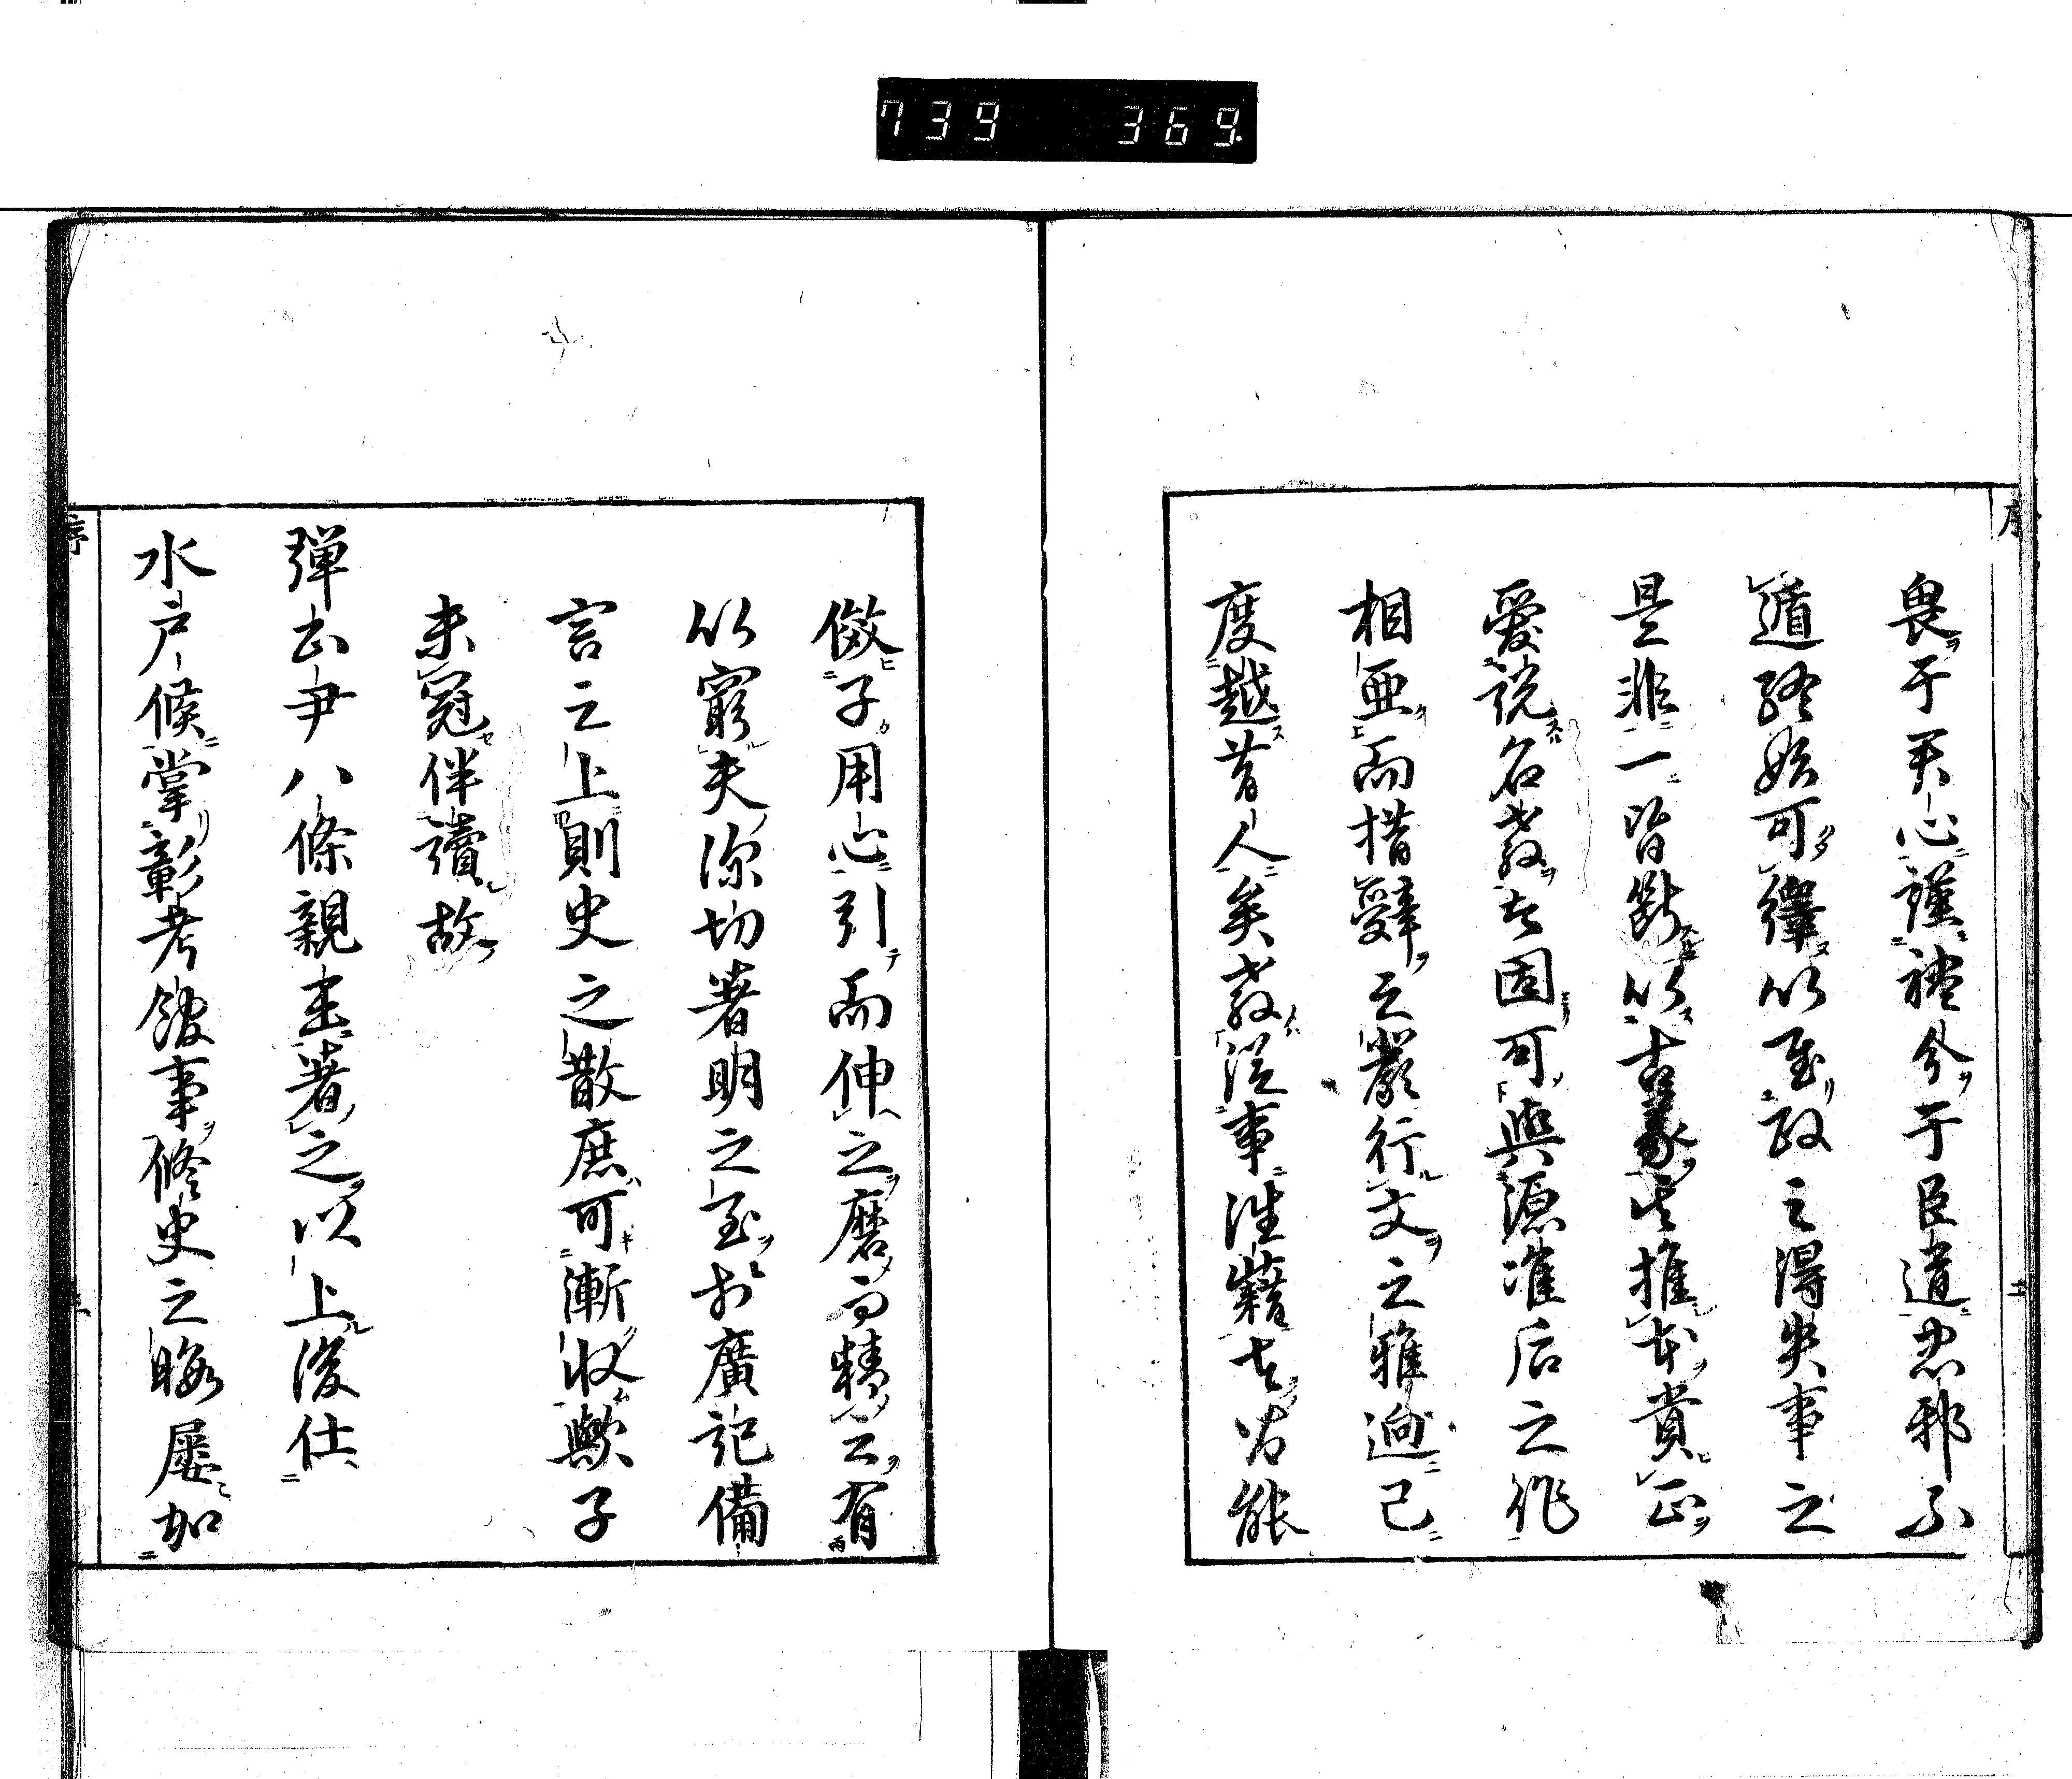 739 369
序
畏于天心謹禮分于臣道忠邪不
遁終始可繹以至政之得失事之
是非一皆斷以古義其推本賞正
愛説名教者固可與源准后之作
相亜而措辭之嚴行文之雅迥已
度越昔人矣教從事淮籍者皆能
儆子用心引而伸之磨而精之有
以窮夫深切著明之至於廣記備
言之上則史之散庶可漸收歟子
未冠伴讀故
弾正尹八條親王著之以上後仕
水戸候掌彰考館事修史之暇屡加
序